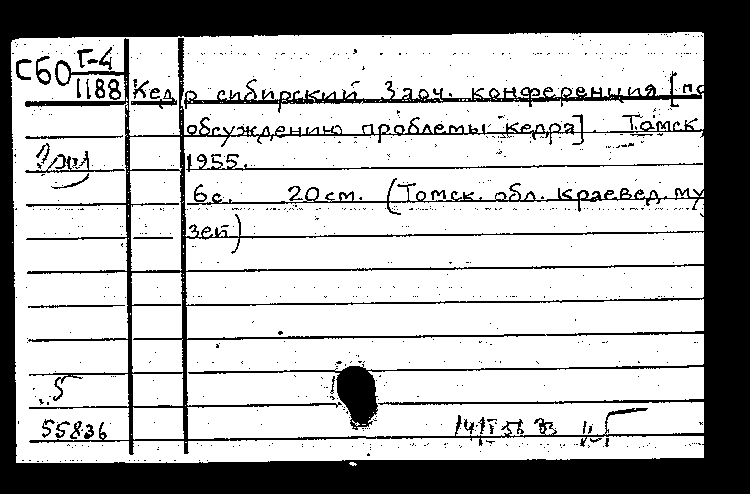 СБО Г-4
1188
Кедр сибирский Заоч. конференция [по
обсуждению проблемы кедра]. Томск,
1955.
6с. 20 см. (Томск. обл. краевед. му
зей)
55836